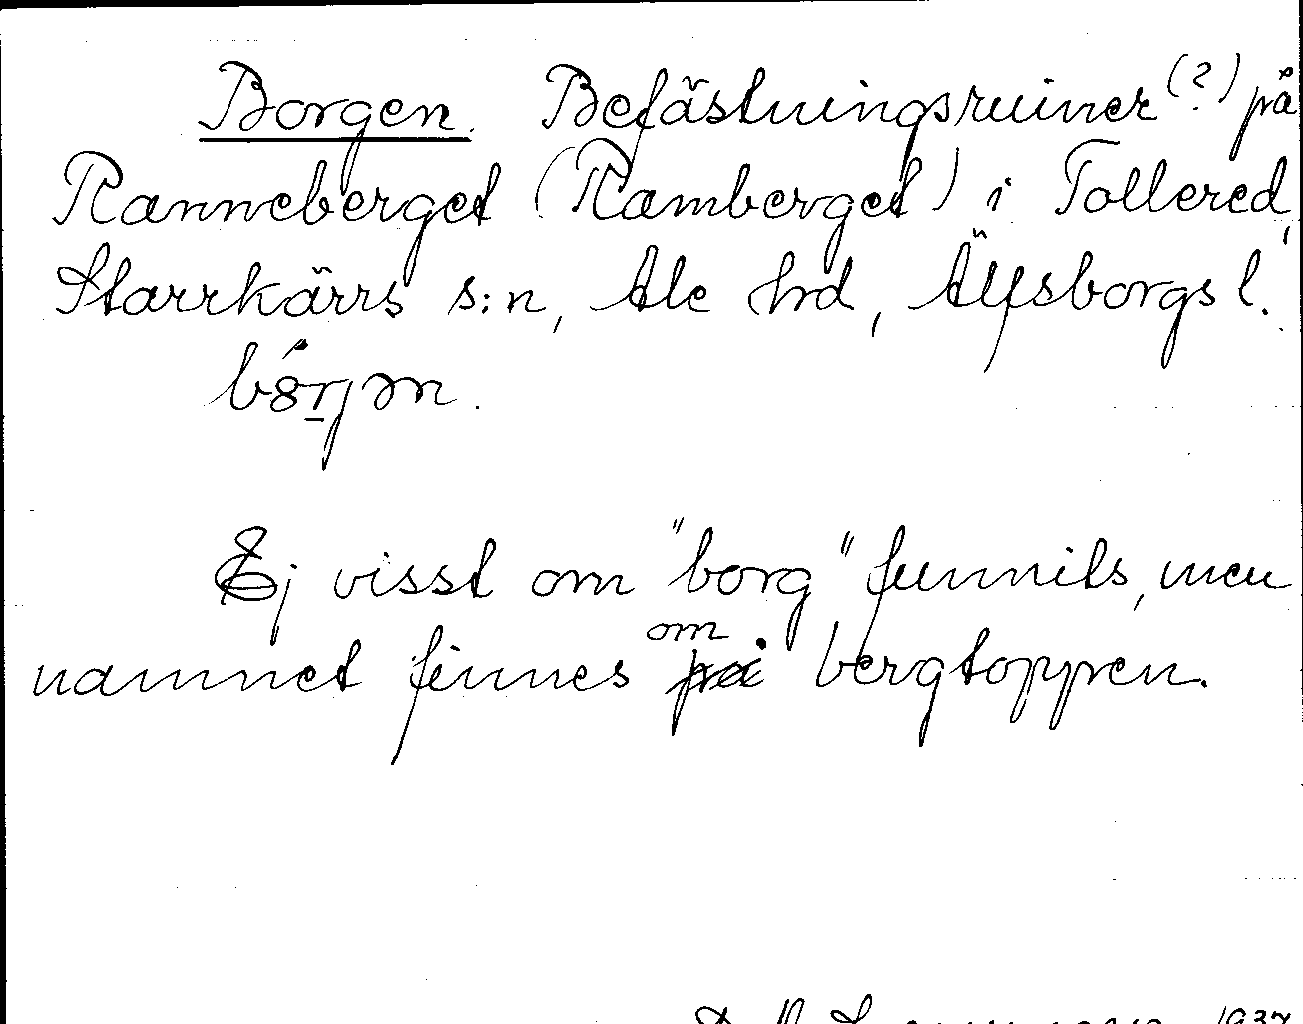 Borgen. Befästningsruiner (?) på
Ranneberget (Ramberget) i Tollered,
Starrkärrs s:n, Ale hrd, Älfsborgs l.
Ej visst om "borg" funnits, men
namnet finnes om på bergtoppen.
1937